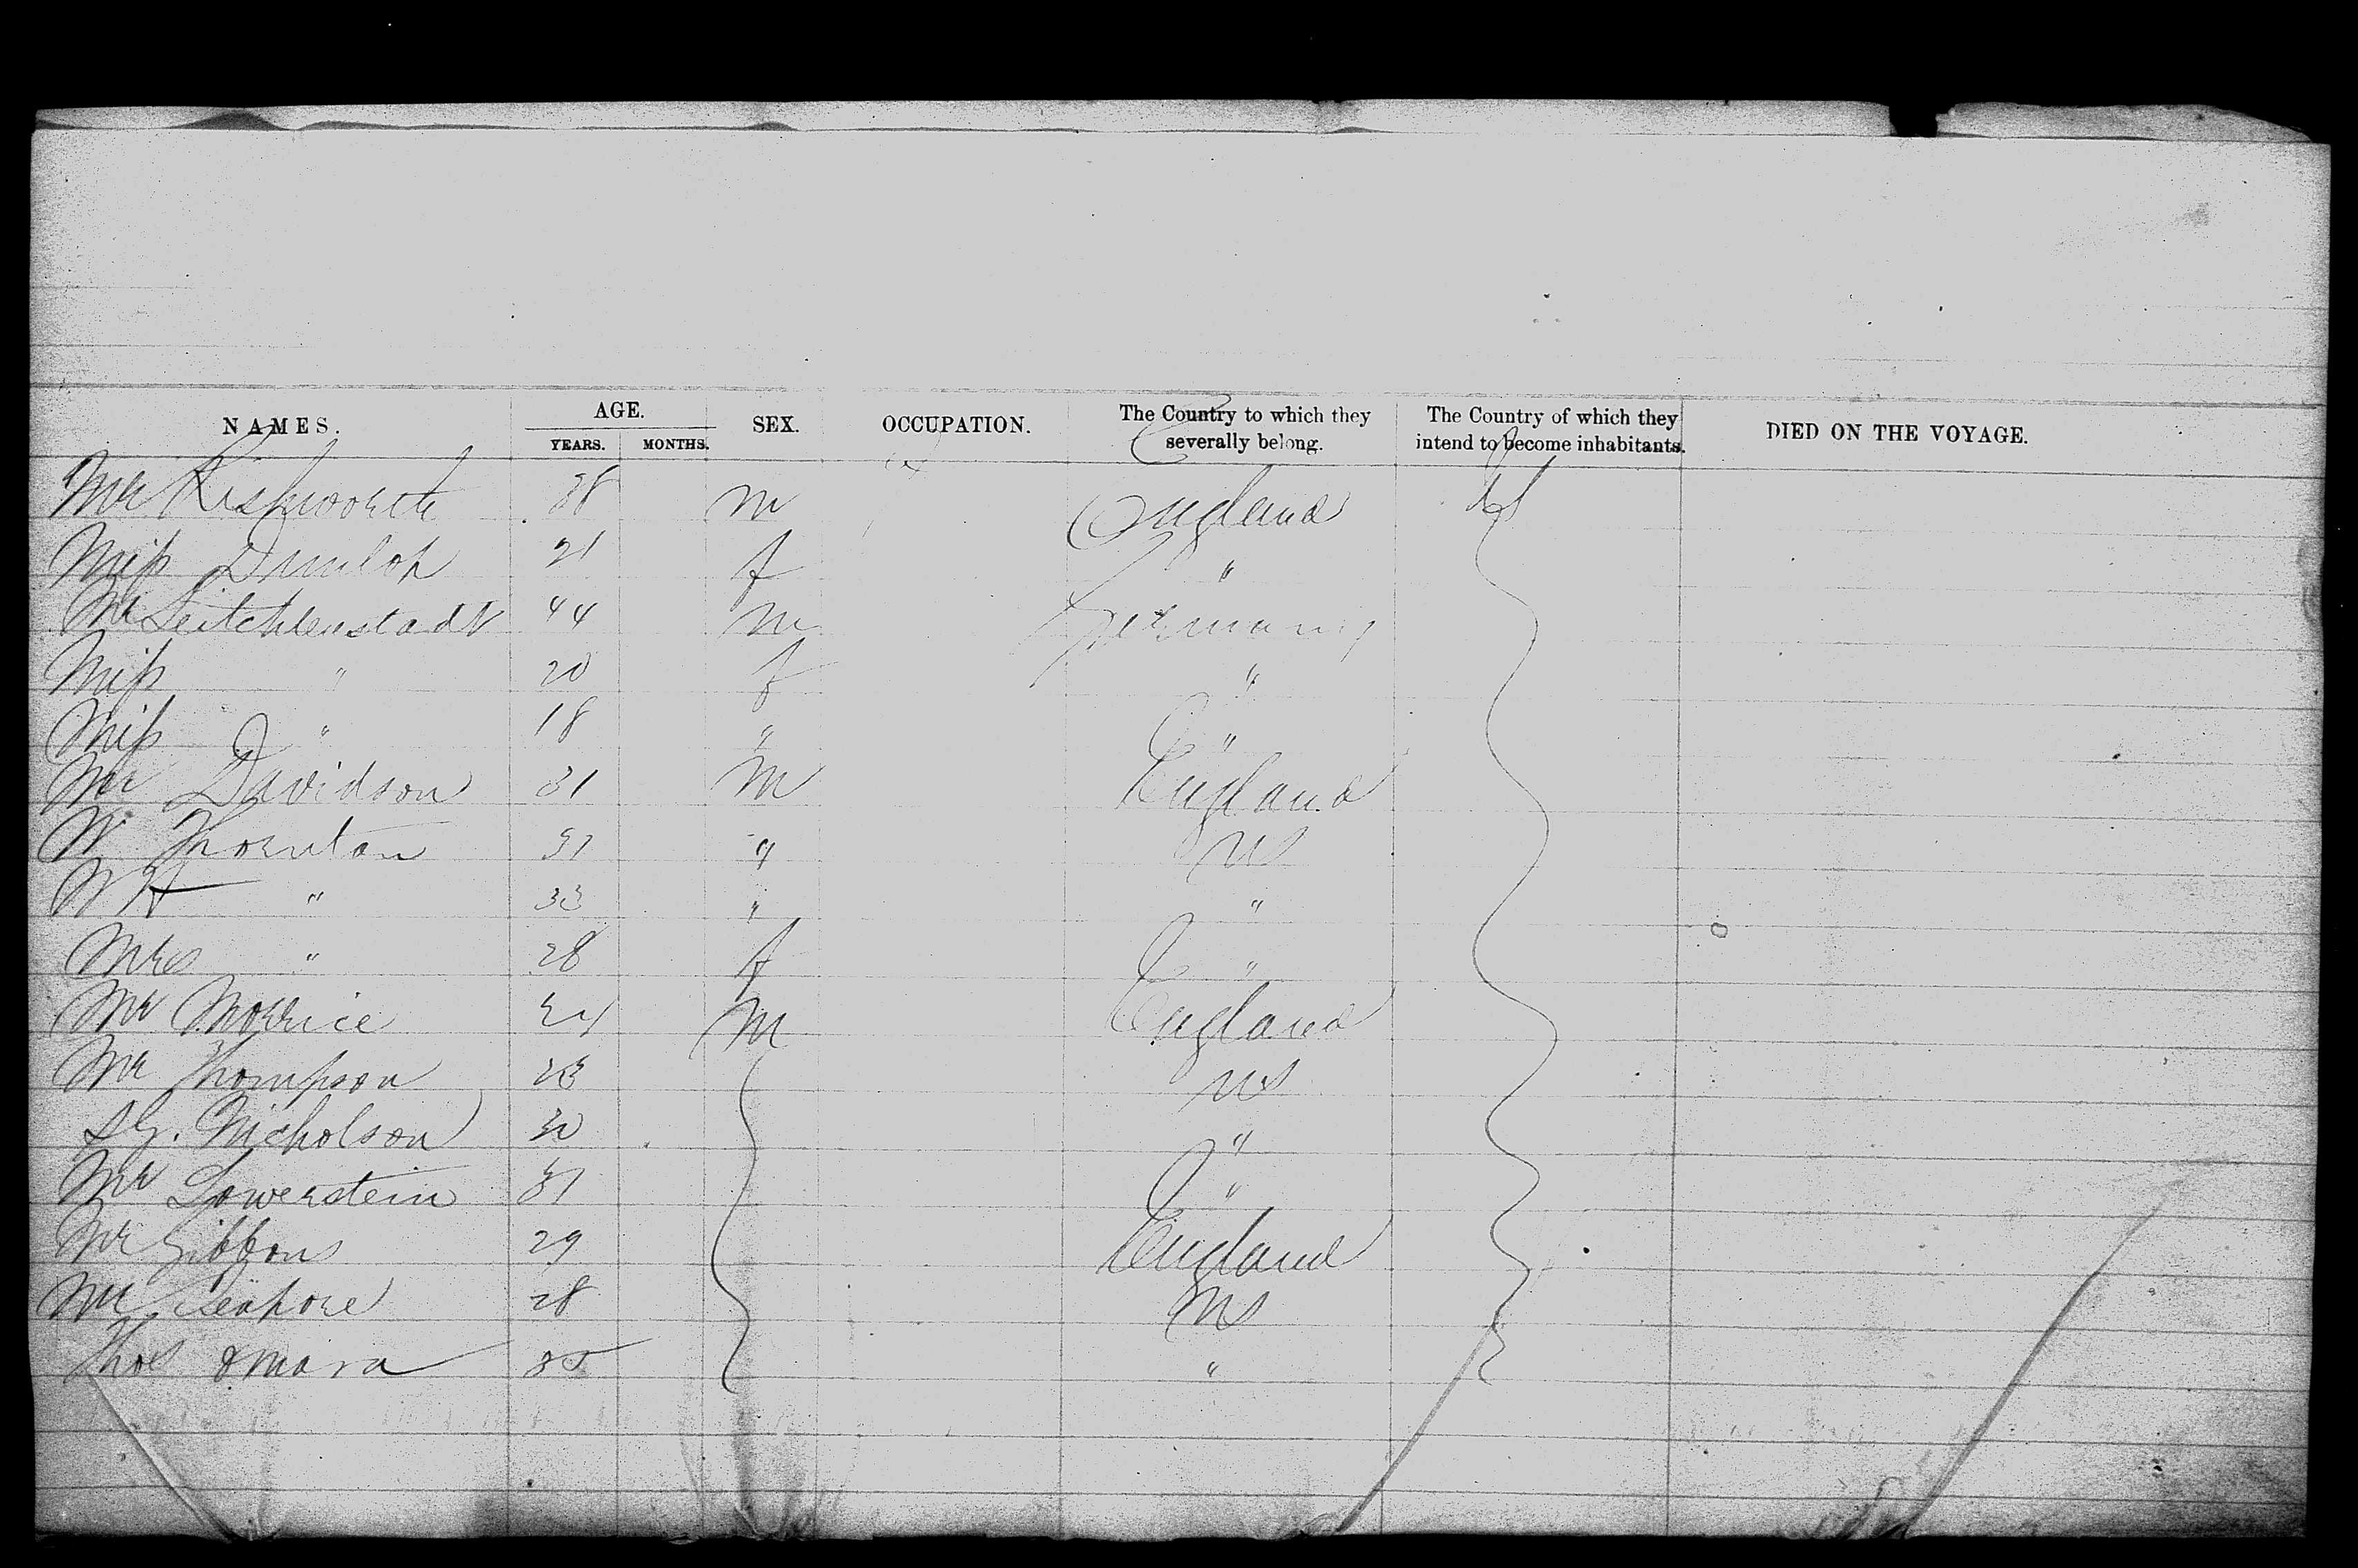 NAMES. AGE. SEX. OCCUPATION. The Country to which they severally belong. The Country of which they intend to become inhabitants. DIED ON THE VOYAGE.
YEARS. MONTHS.
Mr Rishworth 38 m England US
Miss Dunlop 21 f "
Mr Leitchlenstadt 44 m Germany
Miss " 20 f "
Miss " 18 " "
Mr Davidson 31 m England
W Thornton 31 " US
W H " 33 " "
Mrs " 28 f "
Mr Morrice 24 m England
Mr Thompson 23 US
S G. Nicholson 30 "
Mr Lowerstein 31 "
Mr Gibbons 29 England
Mr 28 US
Thos Omara 35 "